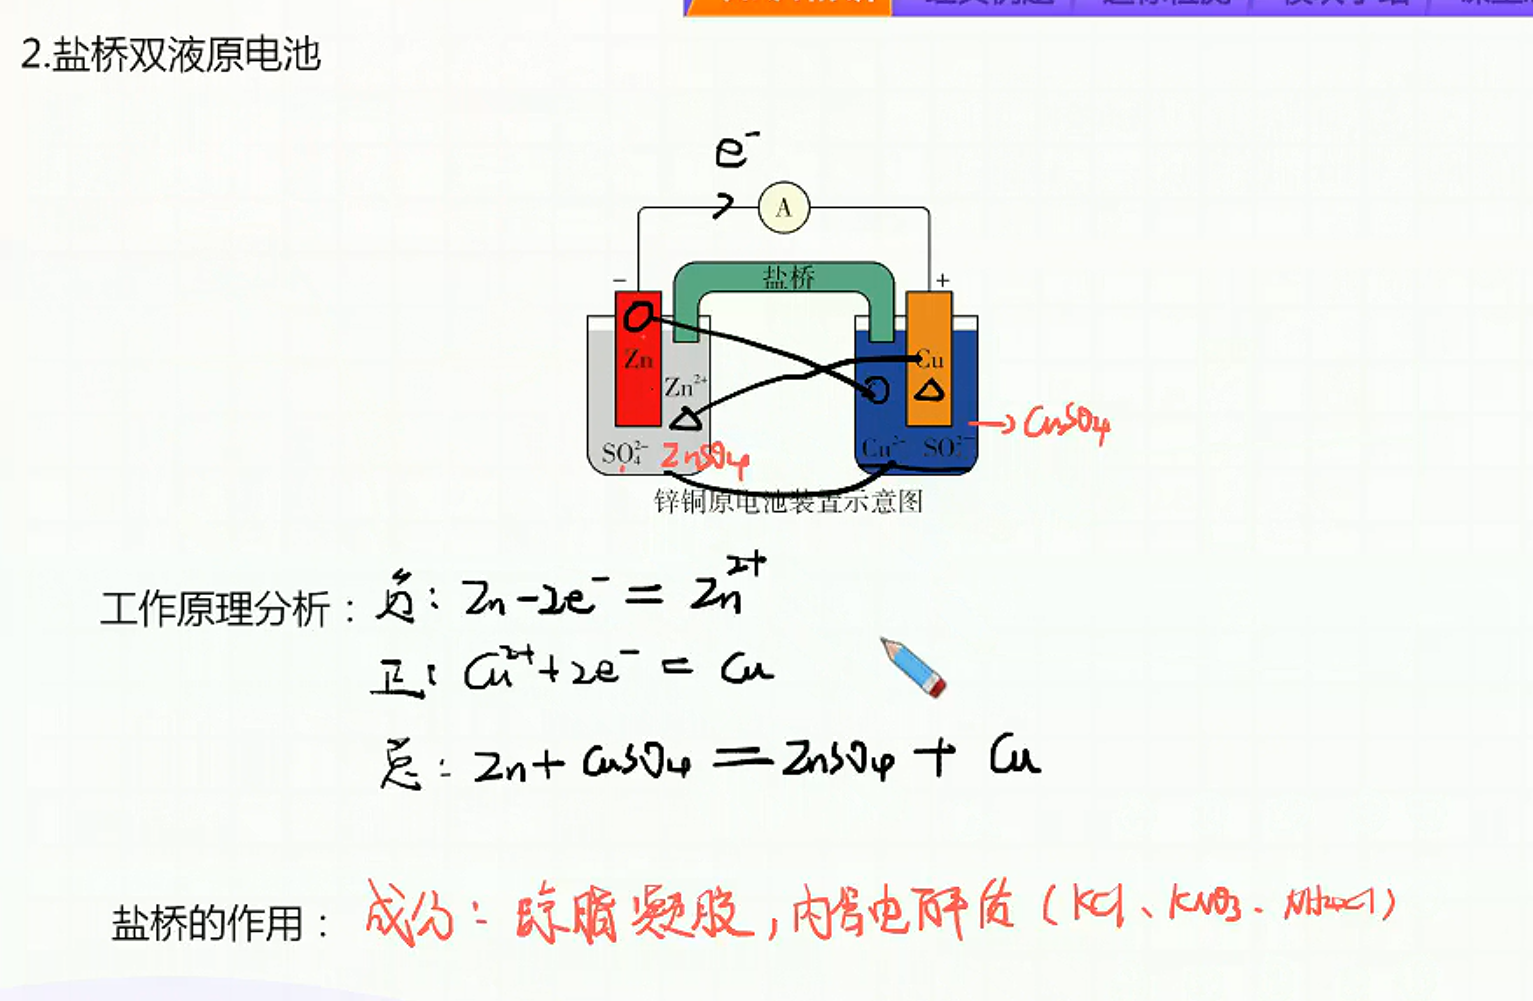 2.盐桥双液原电池
e⁻
A
盐桥
− +
Zn Cu
Zn²⁺
→ CuSO₄
SO₄²⁻ ZnSO₄ Cu²⁻ SO
锌铜原电池装置示意图
工作原理分析： 负: Zn-2e⁻ = Zn²⁺
正: Cu²⁺+2e⁻ = Cu
总: Zn + CuSO₄ = ZnSO₄ + Cu
盐桥的作用： 成分: 琼脂凝胶,内含电解质(KCl、KNO₃、NH₄Cl)